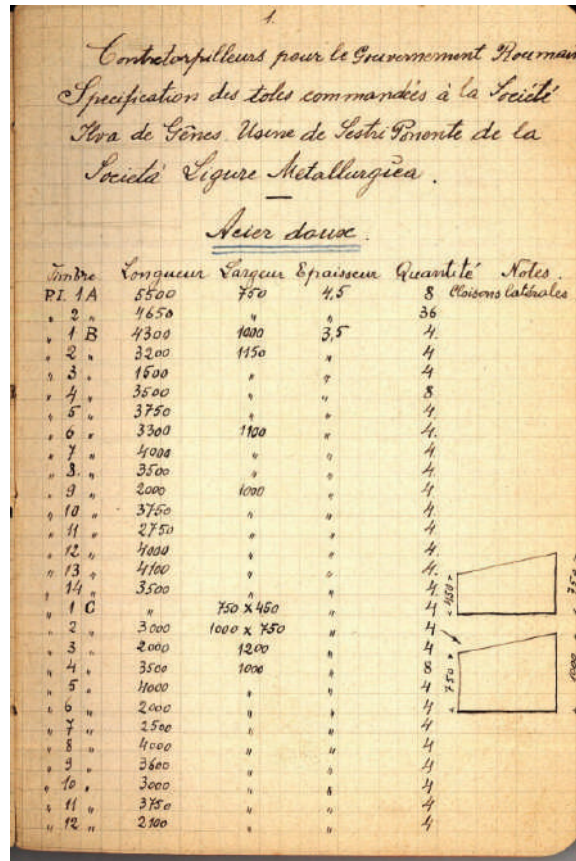 1.
Contretorpilleurs pour le Gouvernement Roumain
Spécification des toles commandées à la Société
Ilva de Gênes Usine de Sestri Ponente de la
Società Ligure Metallurgica.
Acier doux.
Timbre Longueur Largeur Epaisseur Quantité Notes.
P.I. 1 A 5500 750 4,5 8 Cloisons latérales
" 2 " 4650 " " 36
" 1 B 4300 1000 3,5 4.
" 2 " 3200 1150 " 4
" 3 " 1500 " " 4
" 4 " 3500 " " 8
" 5 " 3750 " " 4
" 6 " 3300 1100 " 4.
" 7 " 4000 " " 4
" 8. " 3500 " " 4
" 9 " 2000 1000 " 4
" 10 " 3750 " " 4
" 11 " 2750 " " 4
" 12 " 4000 " " 4.
" 13 " 4100 " " 4.
" 14 " 3500 " " 4.
" 1 C " 750 x 450 " 4
" 2 " 3000 1000 x 750 " 4
" 3 " 2000 1200 " 4
" 4 " 3500 1000 " 8
" 5 " 4000 " " 4
" 6 " 2000 " " 4
" 7 " 2500 " " 4
" 8 " 4000 " " 4
" 9 " 3600 " " 4
" 10 " 3000 " " 4
" 11 " 3750 " " 4
" 12 " 2100 " " 4
450
750
750
1000